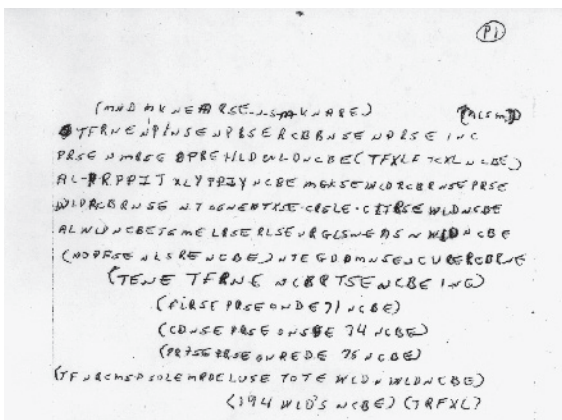 P1
(MND MKNEARSE-N-S-M-KNARE) (ACSM)
TFRNE NPINSE NPBSERCBBNSE NPRSE INC
PRSE NMRSE OPREHLD WLD NCBE (TFXLF TCXL NCBE)
AL-PRPPIT XLY PPIY NCBE MGKSE WLDRCBRNSE PRSE
WLDRCBRNSE NTSGNENTXSE-CRSLE-CITRSE WLD NCBE
ALWLD NCBE TSMELRSERLSEURGLSNEASN WLD NCBE
(NOPFSE NLSRE NCBE) NTEGDDMNSENCURERCBRNE
(TENE TFRNE NCBRTSE NCBE INC)
(FLRSE PRSE ONDE 71 NCBE)
(CDNSE PRSE ONSDE 74 NCBE)
(PRTSE PRSE ONREDE 75 NCBE)
(TFNRCMSP SOLE MRDE LUSE TOTE WLDN WLD NCBE)
(194 WLD'S NCBE) (TRFXL)